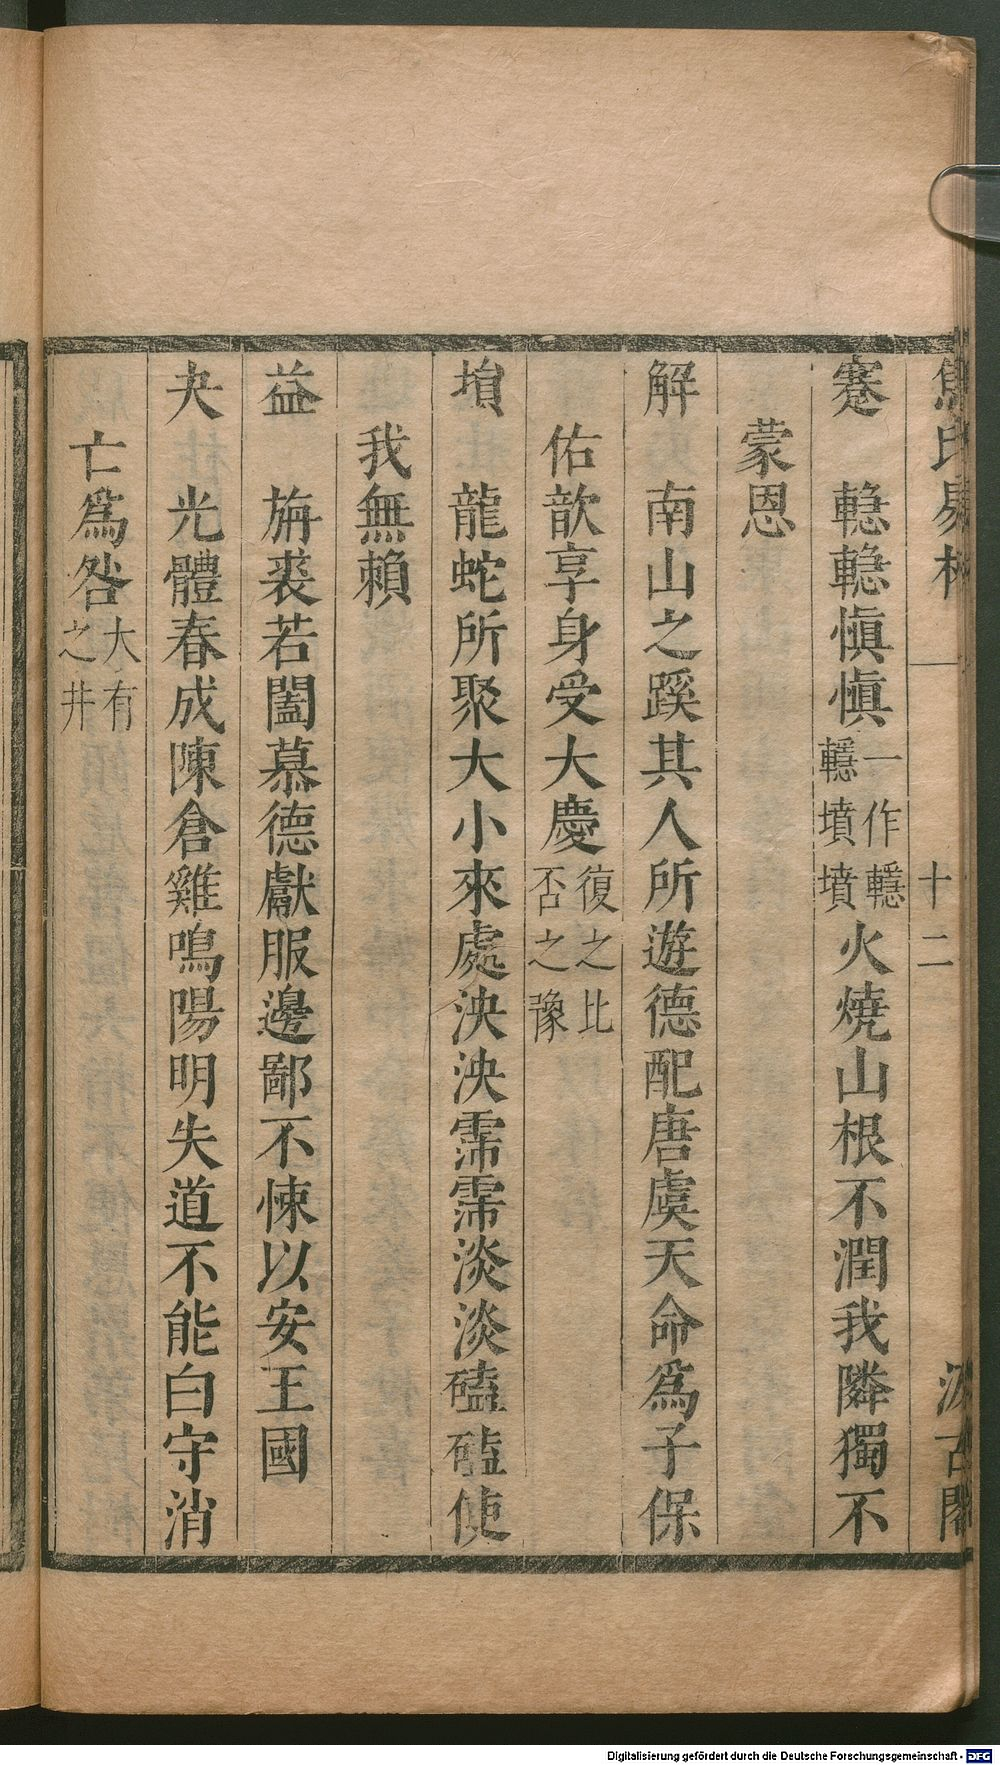 焦氏易林 十二 汲古閣
蹇 轀轀愼愼一作轀轀墳墳火燒山根不潤我隣獨不
蒙恩
解 南山之蹊其人所遊德配唐虞天命爲子保
佑歆享身受大慶復之比否之豫
損 龍蛇所聚大小來處泱泱霈霈淡淡磕磕使
我無賴
益 旃裘若闔慕德獻服邊鄙不悚以安王國
夬 光體春成陳倉雞鳴陽明失道不能自守消
亡爲咎大有之井
Digitalisierung gefördert durch die Deutsche Forschungsgemeinschaft - DFG